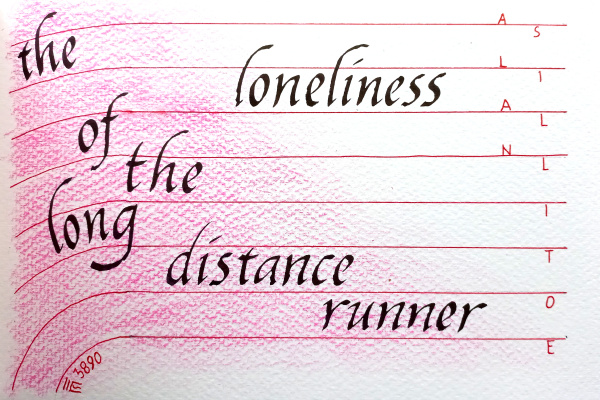 the
loneliness
of
the
long
distance
runner
ALAN
SILLITOE
3890